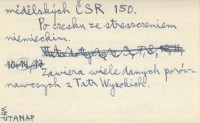 mědělských ČSR 150.
Po czesku ze streszczeniem
niemieckim.
Zawiera wiele danych porów-
nawczych z Tatr Wysokich.
TANAP